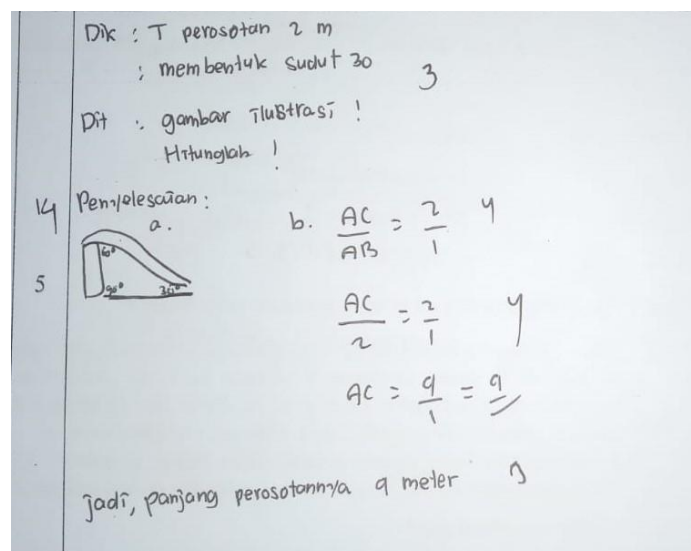 Dik : T perosotan 2 m
: membentuk sudut 30
3
Dit : gambar ilustrasi !
Hitunglah !
14
Penyelesaian :
a.
60°
90° 30°
5
b. AC/AB = 2/1 4
AC/2 = 2/1 4
AC = 4/1 = 4
jadi, panjang perosotannya 4 meter